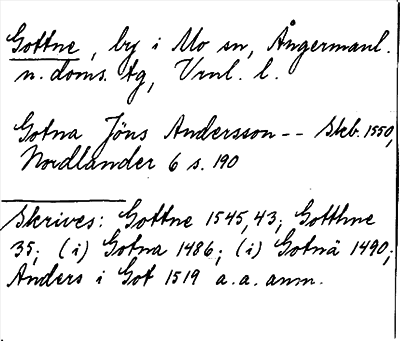 Gottne, by i Mo sn, Ångermanl.
n. doms. tg, Vrnl. l.
Gotna Jöns Andersson -- Skb. 1550,
Nordlander 6 s. 190
Skrives: Gottne 1545, 43; Gotthne
35; (i) Gotna 1486; (i) Gotnä 1490;
Anders i Got 1519 a. a. anm.